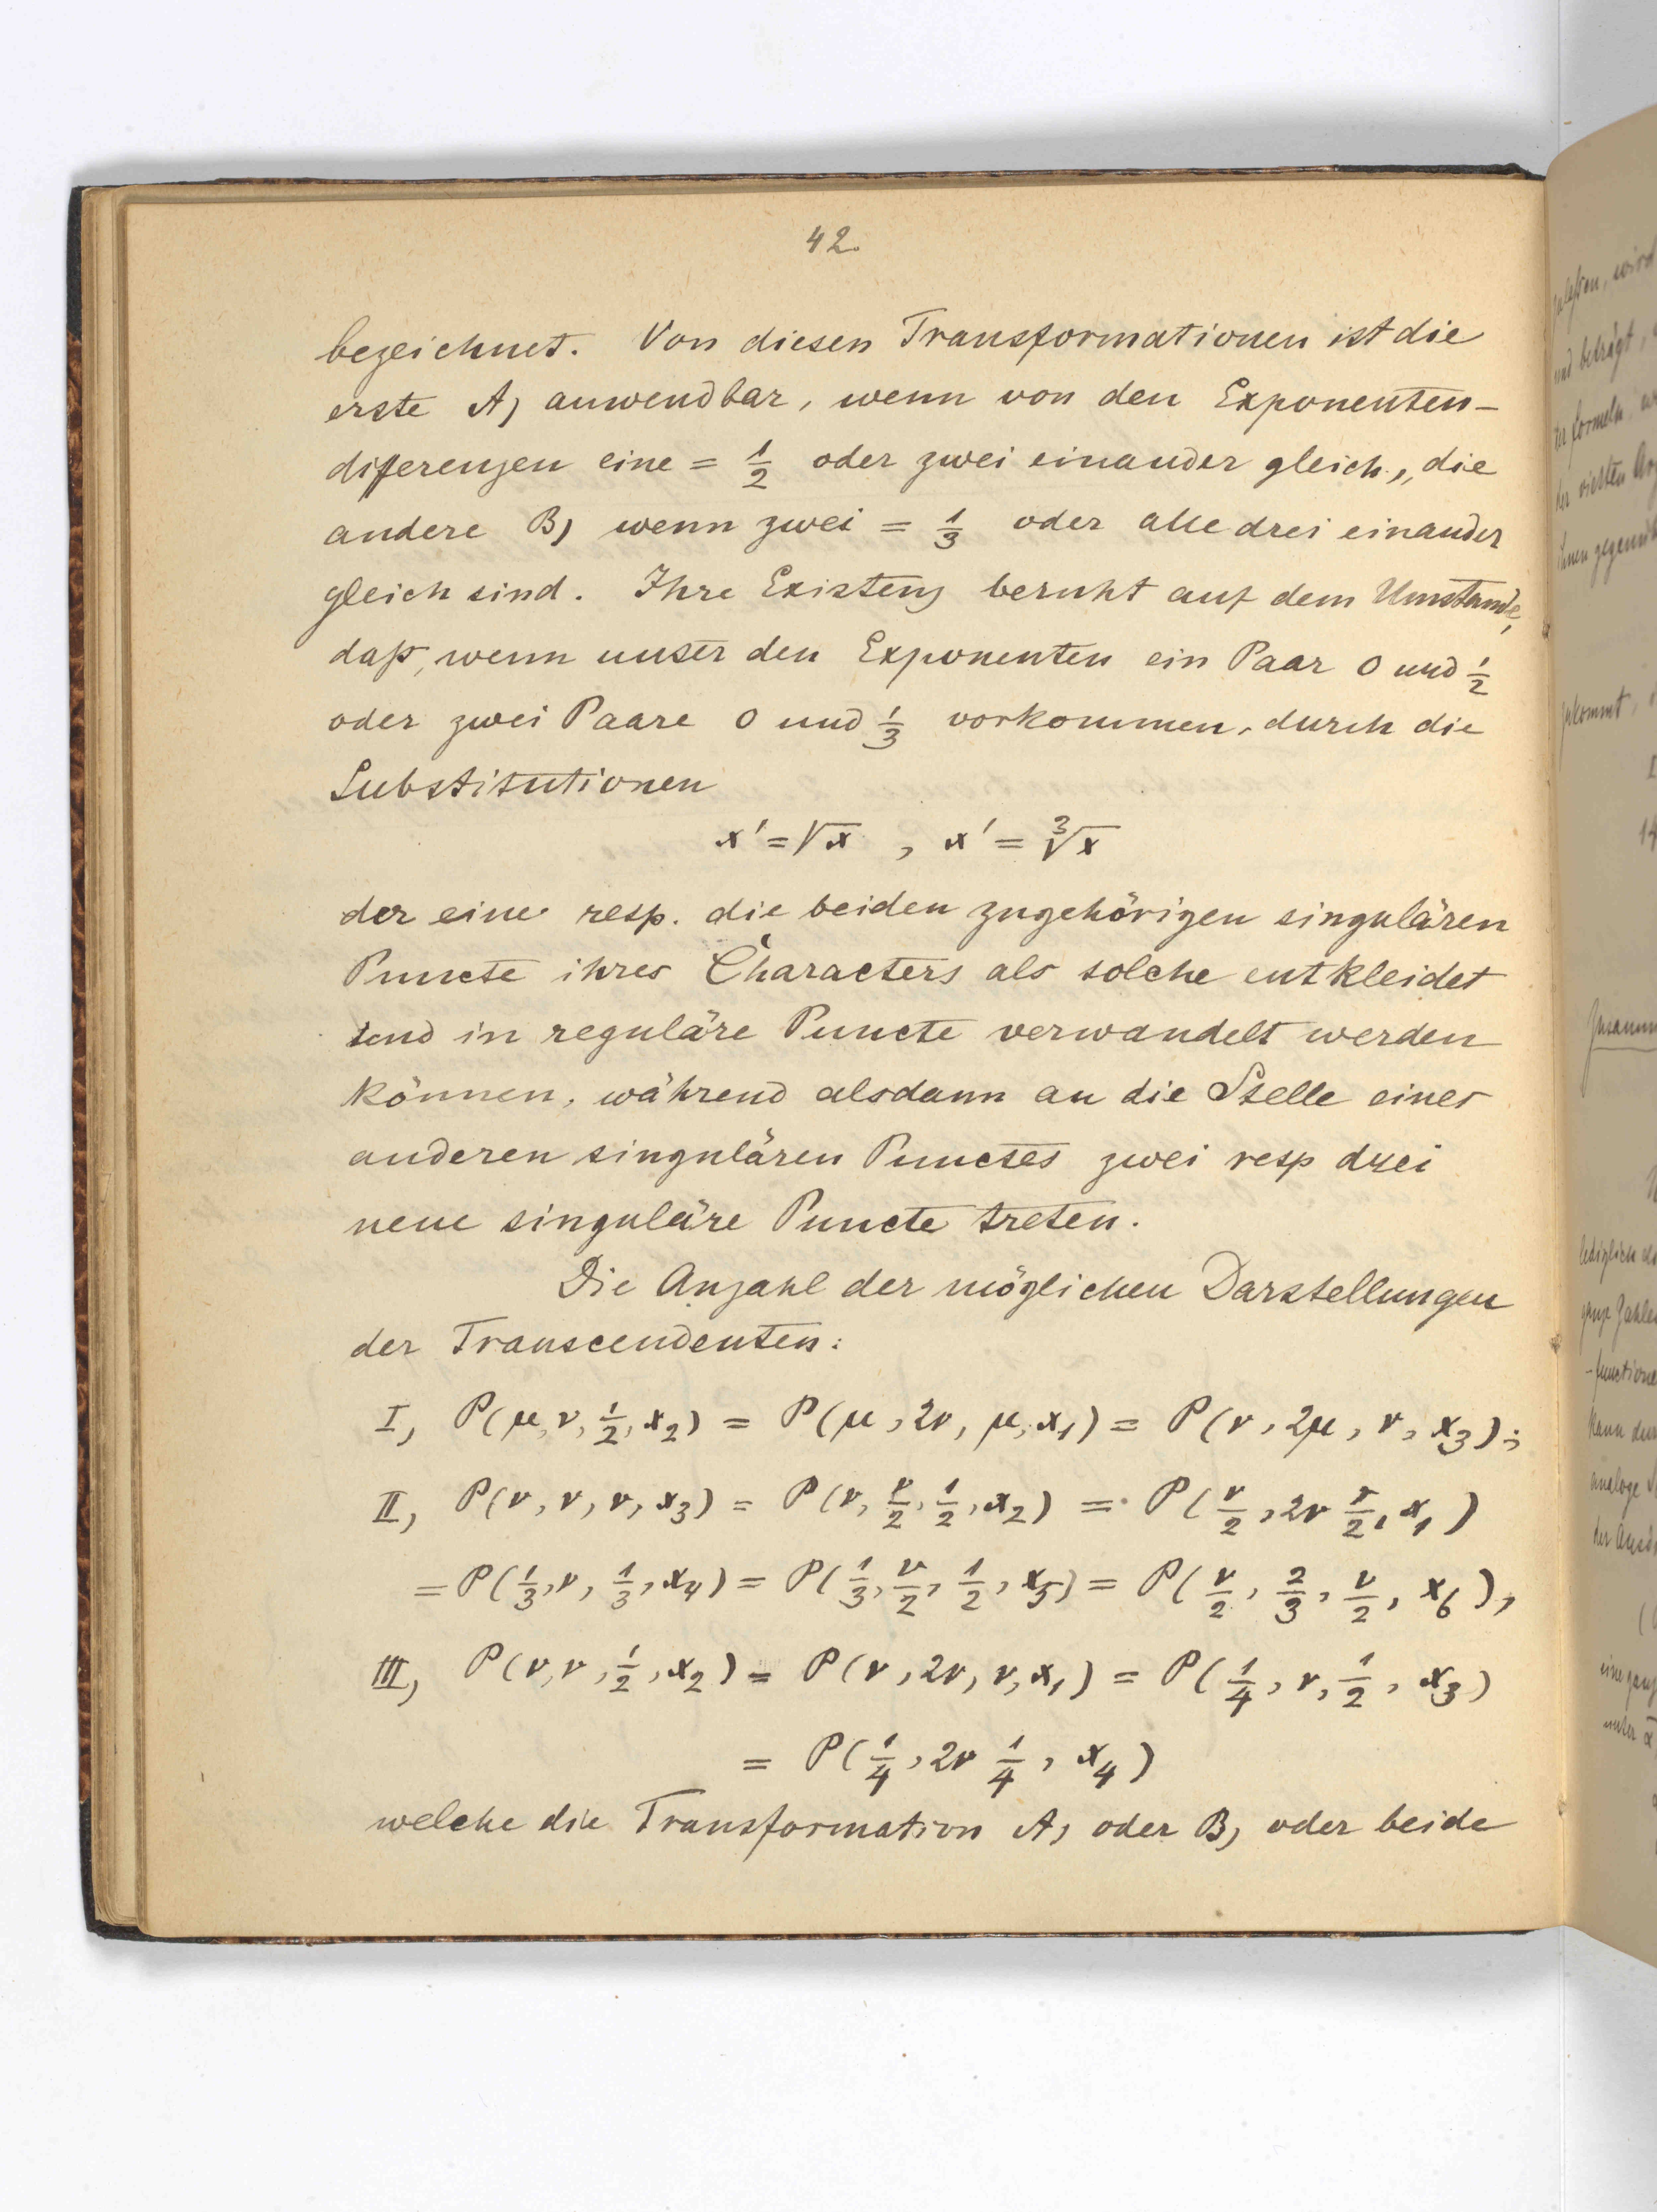 42.
bezeichnet. Von diesen Transformationen ist die
erste A) anwendbar, wenn von den Exponenten-
differenzen eine = 1/2 oder zwei einander gleich, die
andere B) wenn zwei = 1/3 oder alle drei einander
gleich sind. Ihre Existenz beruht auf dem Umstande,
daß, wenn unter den Exponenten ein Paar 0 und 1/2
oder zwei Paare 0 und 1/3 vorkommen, durch die
Substitutionen
x' = √x , x' = ∛x
der eine resp. die beiden zugehörigen singulären
Puncte ihres Characters als solche entkleidet
und in reguläre Puncte verwandelt werden
können, während alsdann an die Stelle eines
anderen singulären Punctes zwei resp drei
neue singuläre Puncte treten.
Die Anzahl der möglichen Darstellungen
der Transcendenten:
I, P(μ, ν, 1/2, x₂) = P(μ, 2ν, μ, x₁) = P(ν, 2μ, ν, x₃);
II, P(ν, ν, ν, x₃) = P(ν, ν/2, 1/2, x₂) = P(ν/2, 2ν ν/2, x₁)
= P(1/3, ν, 1/3, x₄) = P(1/3, ν/2, 1/2, x₅) = P(ν/2, 2/3, ν/2, x₆),
III, P(ν, ν, 1/2, x₂) = P(ν, 2ν, ν, x₁) = P(1/4, ν, 1/2, x₃)
= P(1/4, 2ν 1/4, x₄)
welche die Transformation A) oder B) oder beide